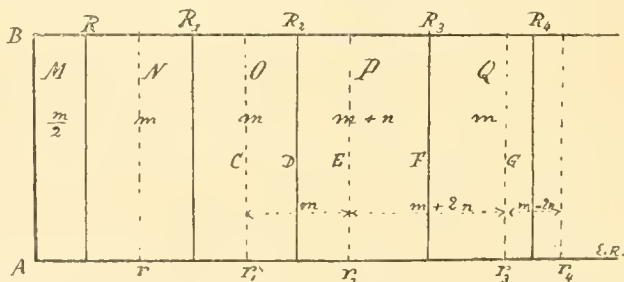 R R₁ R₂ R₃ R₄
B
M N O P Q
m/2 m m m + n m
C D E F G
m m + 2n m - 2n
E.R.
A r r₁ r₂ r₃ r₄